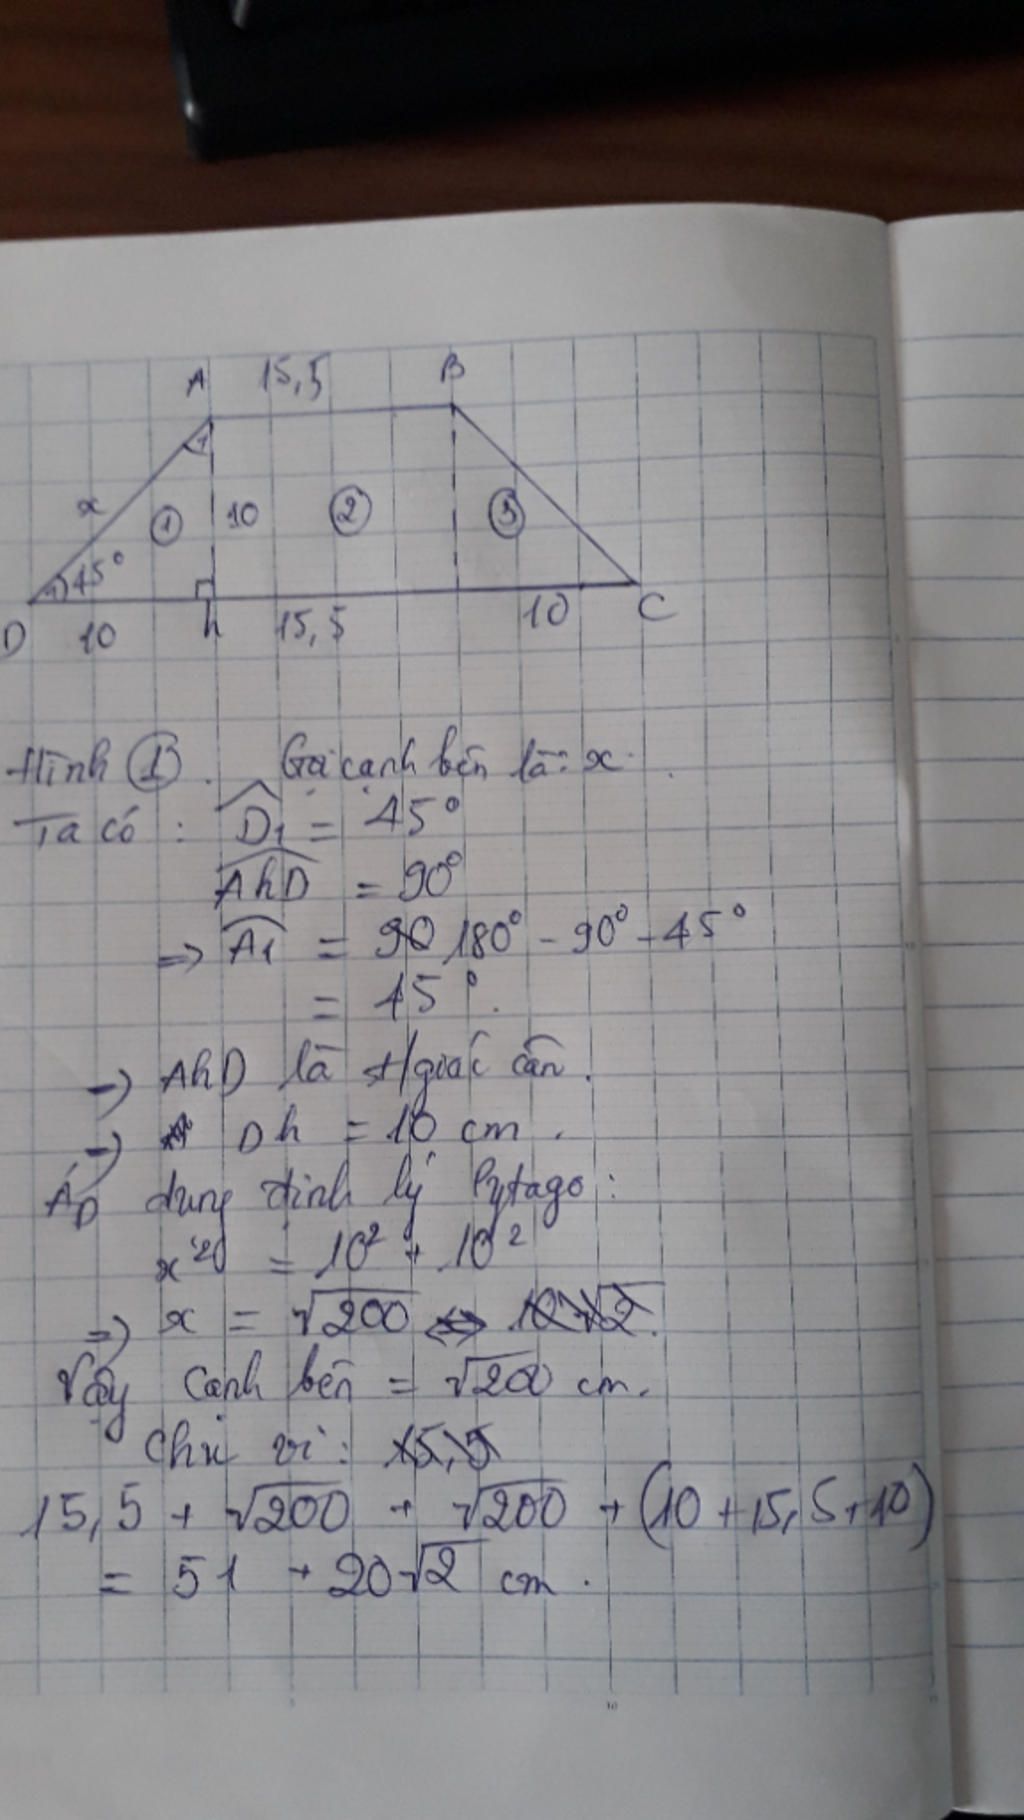 A 15,5 B
x 1 10 2 3
1 45°
D 10 h 15,5 10 C
Hình 1. Gọi cạnh bên là: x.
Ta có: D1 = 45°
AhD = 90°
=> A1 = 90 180° - 90° - 45°
= 45°.
=> AhD là t/giác cân.
=> Dh = 10 cm.
ÁD dung định lý Pytago:
x² = 10² + 10²
=> x = √200 <=> 10√2.
Vậy cạnh bên = √200 cm.
Chu vi: 15,5
15,5 + √200 + √200 + (10 + 15,5 + 10)
= 51 + 20√2 cm.